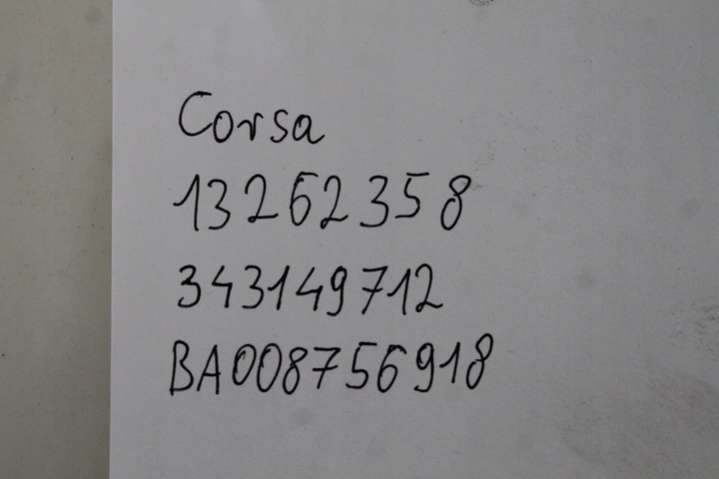 Corsa
13262358
343149712
BA008756918